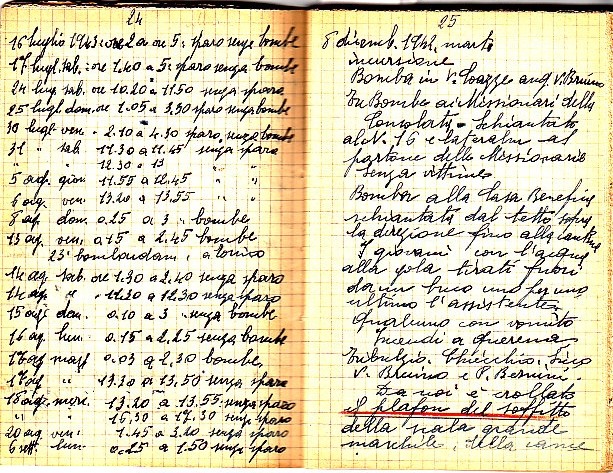 24
16 luglio 1943: ore 2 a ore 5: sparo senza bombe
17 lugl. sab.: ore 1.40 a 5: sparo senza bombe
24 lug. sab. ore 10.20 a 11.50 senza sparo
25 lugl. dom. ore 1.05 a 3.30 sparo senza bombe
30 lugl. ven. 2.10 a 4.30 sparo senza bombe
31 " sab. 11.30 a 11.45 senza sparo
" " 12.30 a 13 " "
5 ag. giov. 11.55 a 12.45 " "
6 ag. ven. 13.20 a 13.55 " "
8 ag. dom. 0.25 a 3 bombe
13 ag. ven. 0.15 a 2.45 bombe
23° bombardam. a Torino
14 ag. sab. ore 1.30 a 2.40 senza sparo
14 ag. " " 11.30 a 12.30 senza sparo
15 ag. dom. 0.10 a 3 senza bombe
16 ag. lun. 0.15 a 2.25 senza bombe
17 ag. mart. 0.03 a 2.30 bombe
17 ag. " 13.30 a 13.50 senza sparo
18 ag. merc. 13.20 a 13.55 senza sparo
" " 16.30 a 17.30 senza sparo
20 ag. ven. 1.45 a 3.20 senza sparo
6 sett. lun. 0.25 a 1.50 senza sparo
25
8 dicemb. 1942. mart.
incursione
Bomba in V. ang. V. Bruino
Tre Bombe ai Missionari della
Consolata - Schiantato
al N. 16 e lateralm. al
portone delle Missionarie
senza vittime
Bomba alla Casa Benefica
schiantata dal tetto sopra
la direzione fino alla cantina
I giovani con l'acqua
alla gola tirati fuori
da un buco uno per uno
ultimo l'assistente
Qualcuno con vomito
Incendi a
V. Bruino e P. Bernini.
Da noi è crollato
il plafon del soffitto
della scala grande
maschile, della